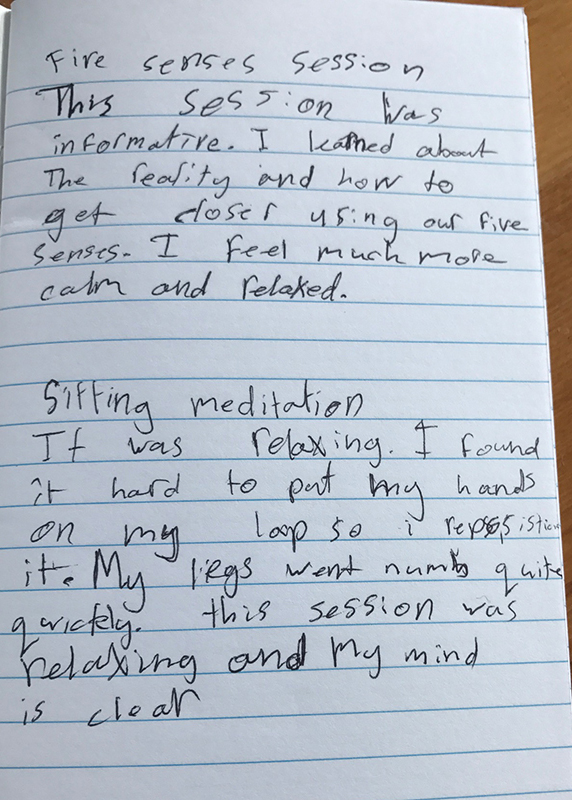 Five senses session
This session was
informative. I learned about
The reality and how to
get closer using our five
senses. I feel much more
calm and relaxed.
Sitting meditation
It was relaxing. I found
it hard to put my hands
on my loop so i
it. My legs went numb quite
quickly. this session was
relaxing and my mind
is clear